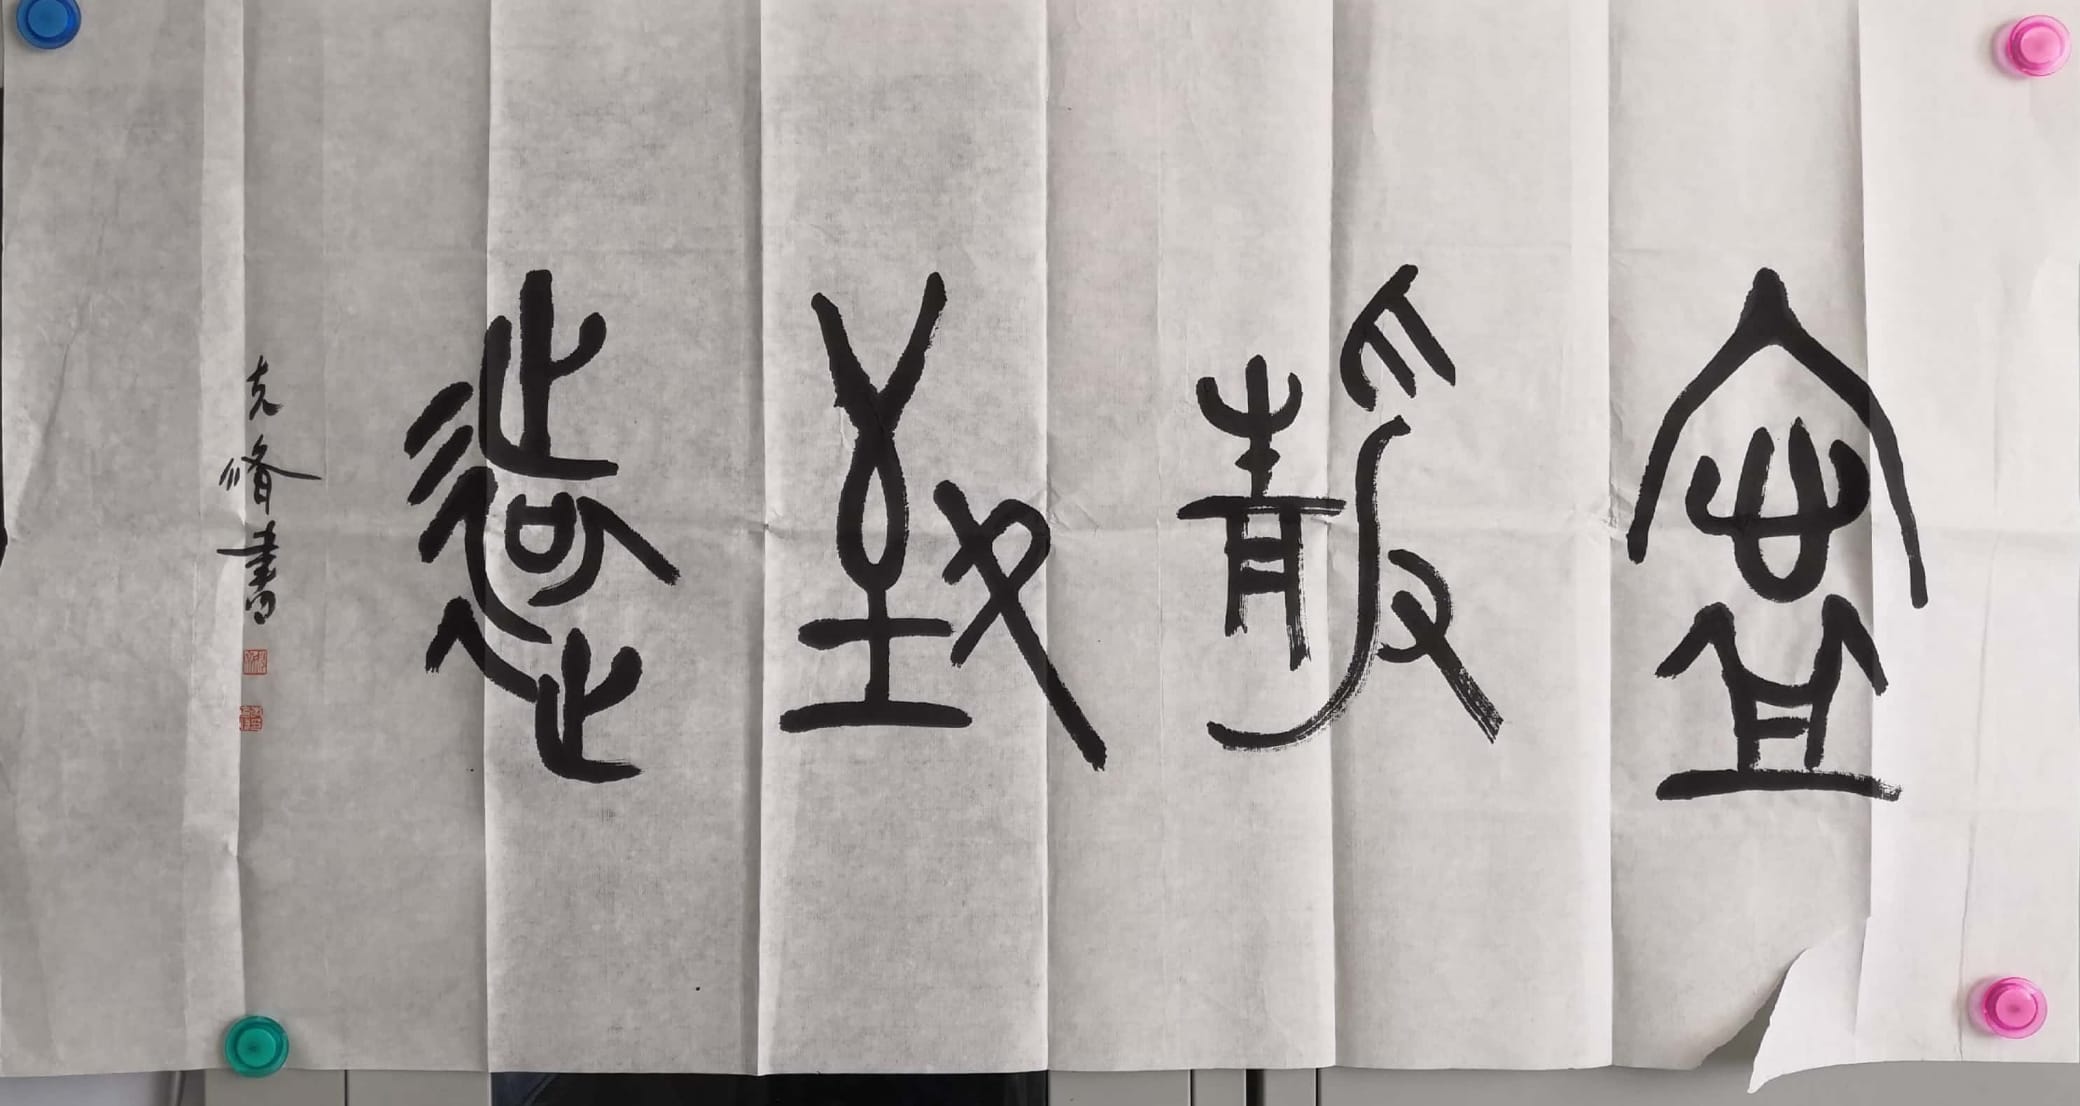 寧靜致遠
克脩書